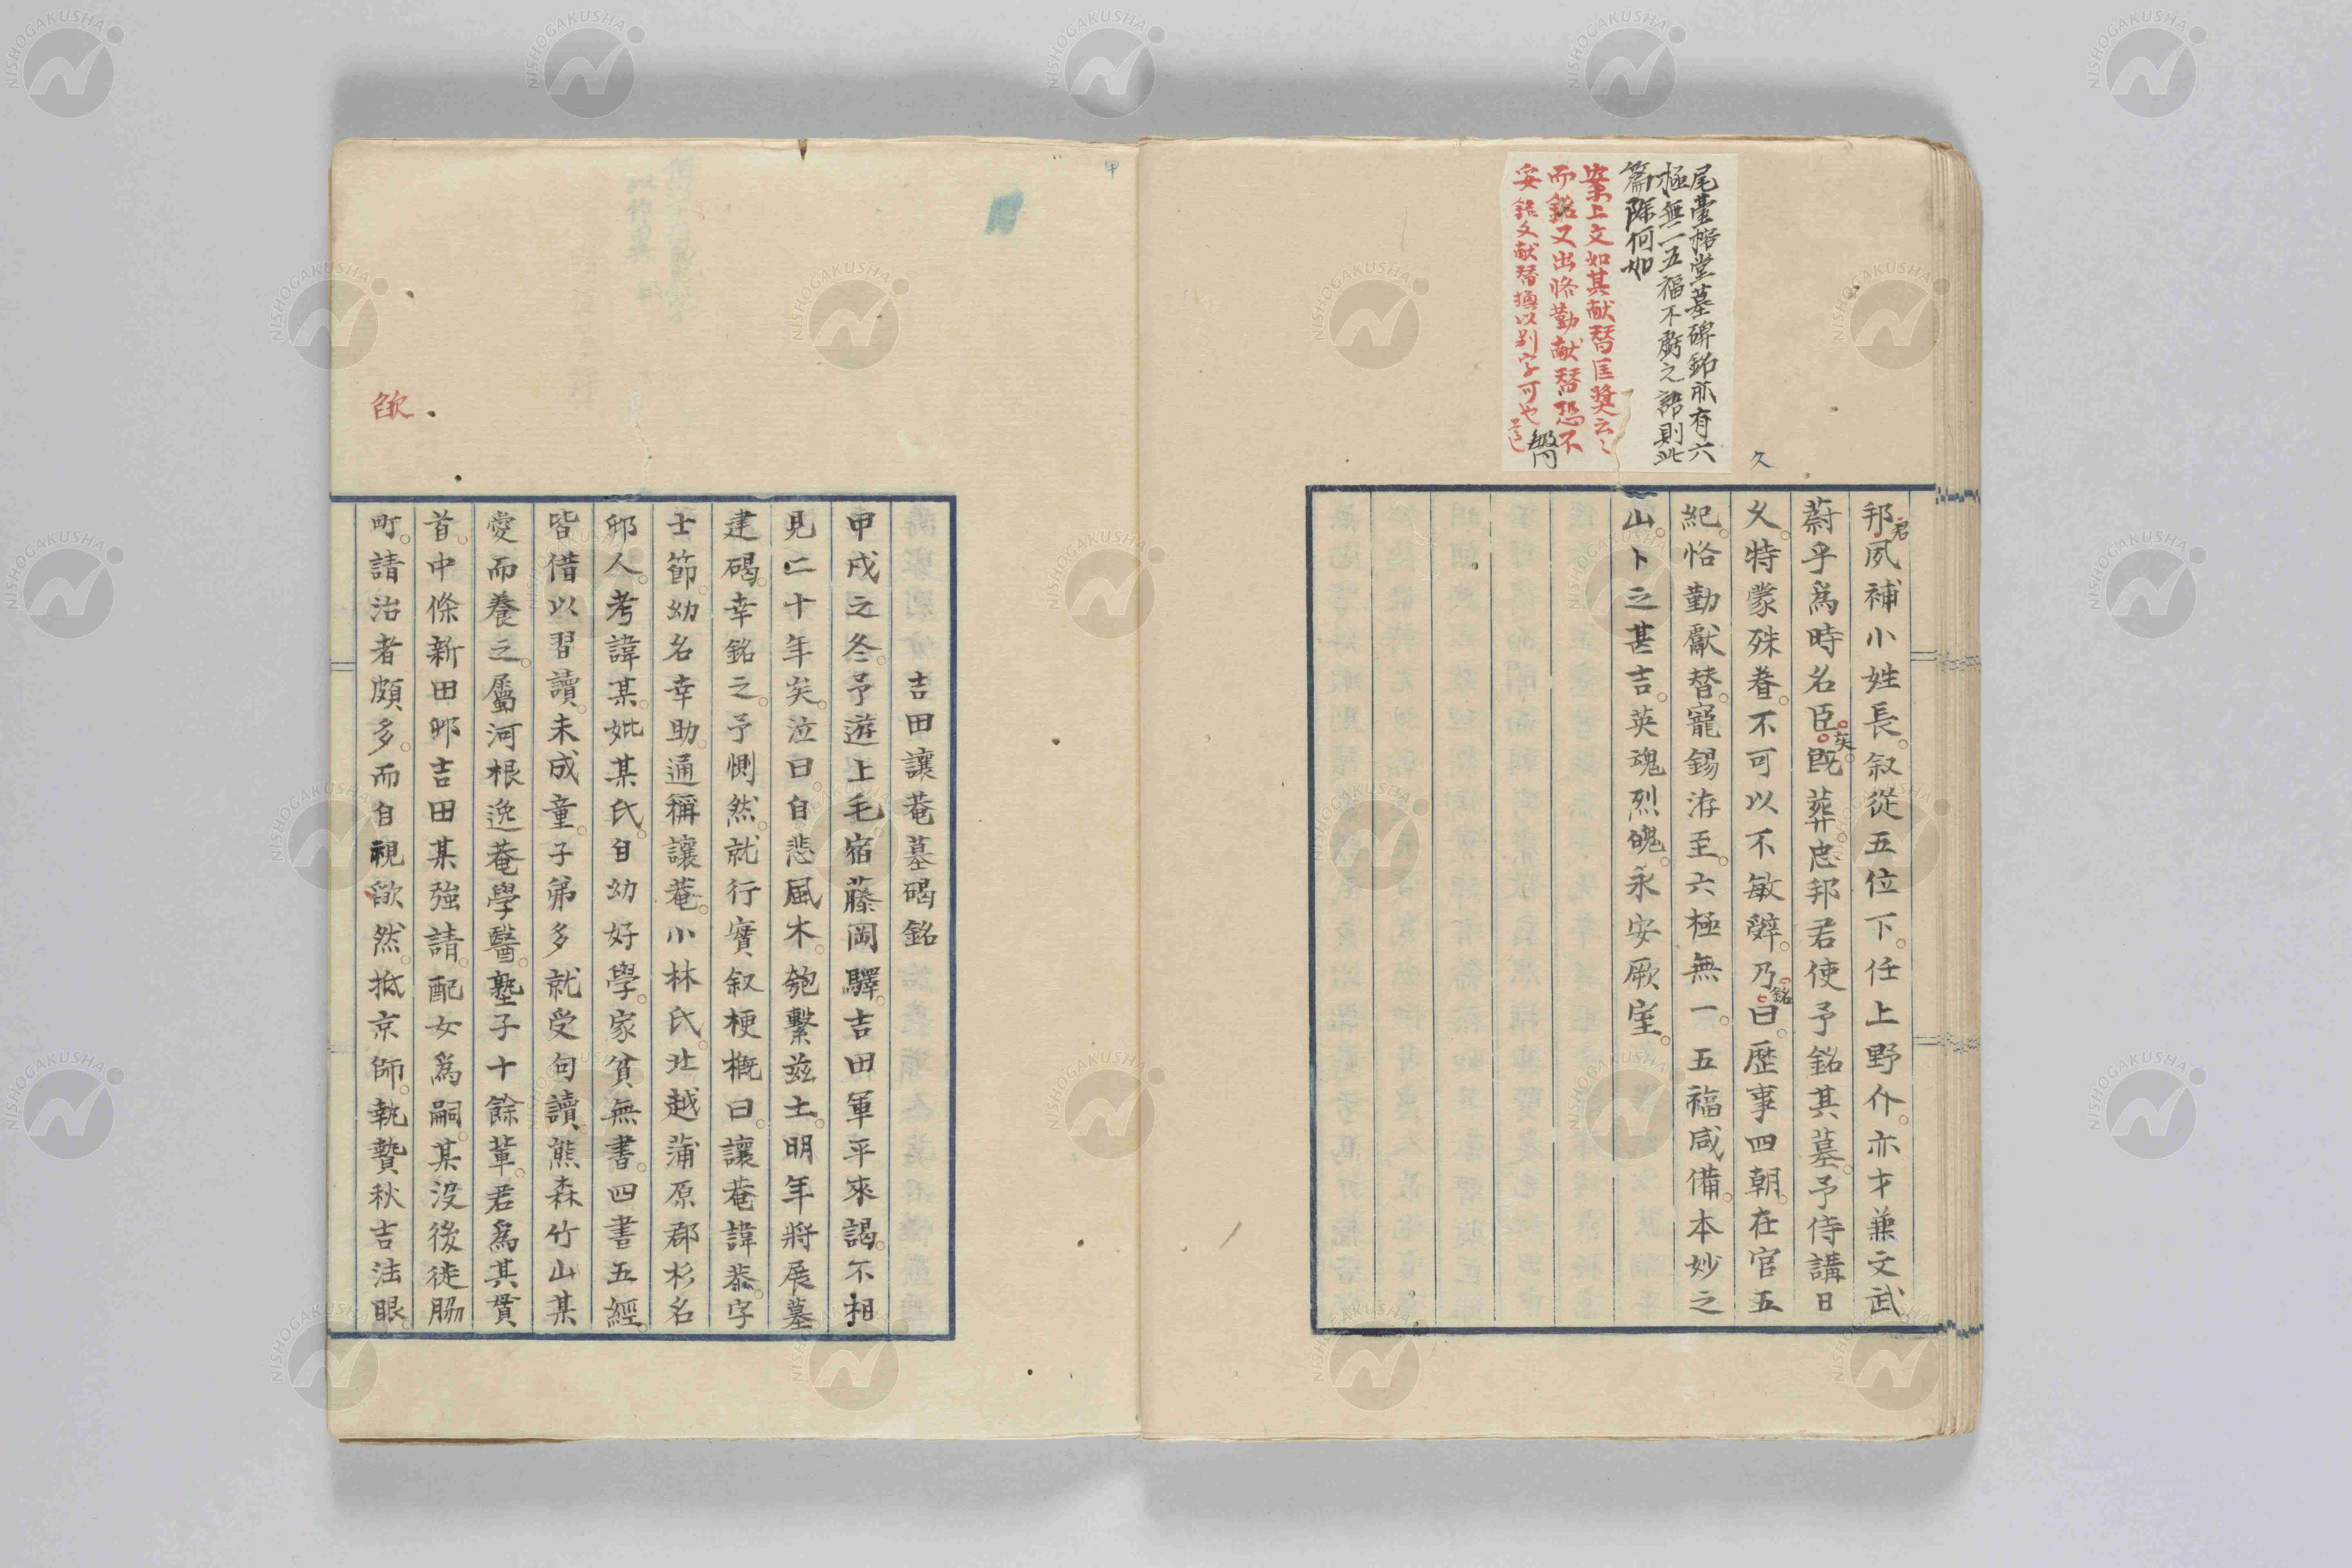 尾臺榕堂墓碑銘亦有六
極無一五福不虧之語則此
篇除何如
案上文如其献替匡奨云〻
而銘又出恪勤献替恐不
妥銘文献替換以別字可也
久
邦君夙補小姓長。叙從五位下。任上野介。亦才兼文武
蔚乎爲時名臣矣。既葬。忠邦君使予銘其墓。予侍講日
久。特蒙殊眷。不可以不敏辭。乃銘曰。歷事四朝。在官五
紀。恪勤獻替。寵錫洊至。六極無一。五福咸備。本妙之
山。卜之甚吉。英魂烈魄。永安厥室。
甲
吉田讓菴墓碣銘
甲戌之冬。予遊上毛宿藤岡驛。吉田軍平來謁。不相
見二十年矣。泣曰。自悲風木。匏繫兹土。明年將展墓
建碣。幸銘之。予惻然。就行實叙梗概曰。讓菴諱恭。字
士節。幼名幸助。通稱讓菴。小林氏。北越蒲原郡杉名
邨人。考諱某。妣某氏。自幼好學。家貧無書。四書五經。
皆借以習讀。未成童。子弟多就受句讀。熊森竹山某
愛而養之。屬河根逸菴學醫。塾子十餘輩。君爲其貫
首。中條新田邨吉田某強請。配女爲嗣。某没後徒脇
町。請治者頗多。而自視欿然。抵京師。執贄秋吉法眼。
欿
NISHOGAKUSHA